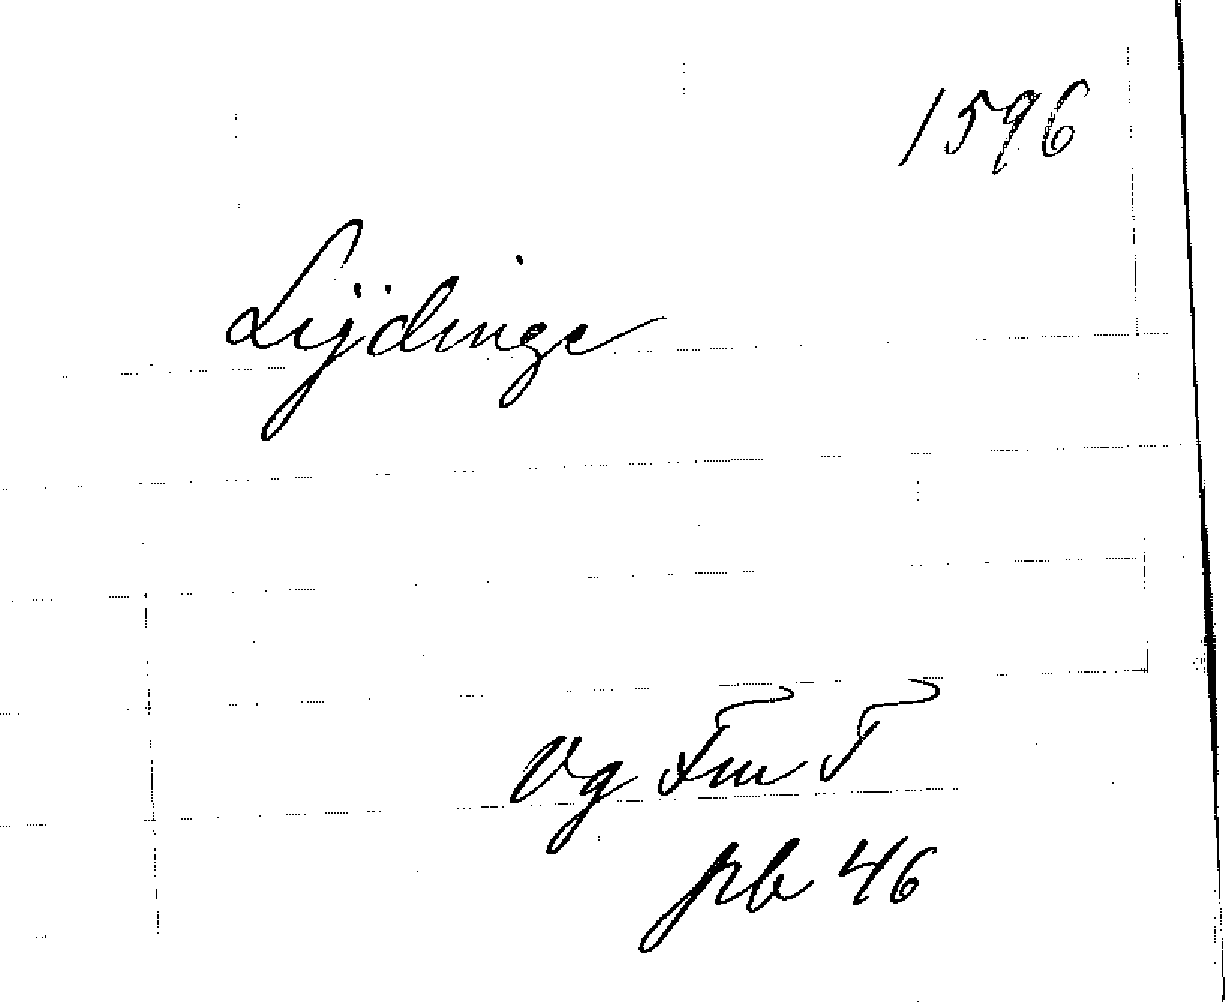 1596
Lÿdinge
Vg Fm T
pb 46